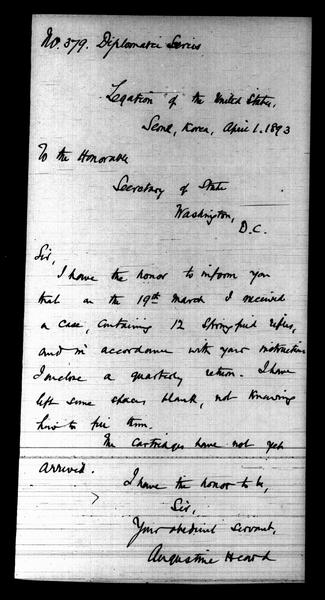 No. 379. Diplomatic Series
Legation of the United States,
Seoul, Korea, April 1. 1893
To the Honorable
Secretary of State
Washington,
D.C.
Sir,
I have the honor to inform you
that on the 19th March I received
a case, containing 12 Springfield rifles,
and in accordance with your instructions
I enclose a quarterly return. I have
left some spaces blank, not knowing
how to fill them.
The cartridges have not yet
arrived.
I have the honor to be,
Sir,
Your obedient servant,
Augustine Heard